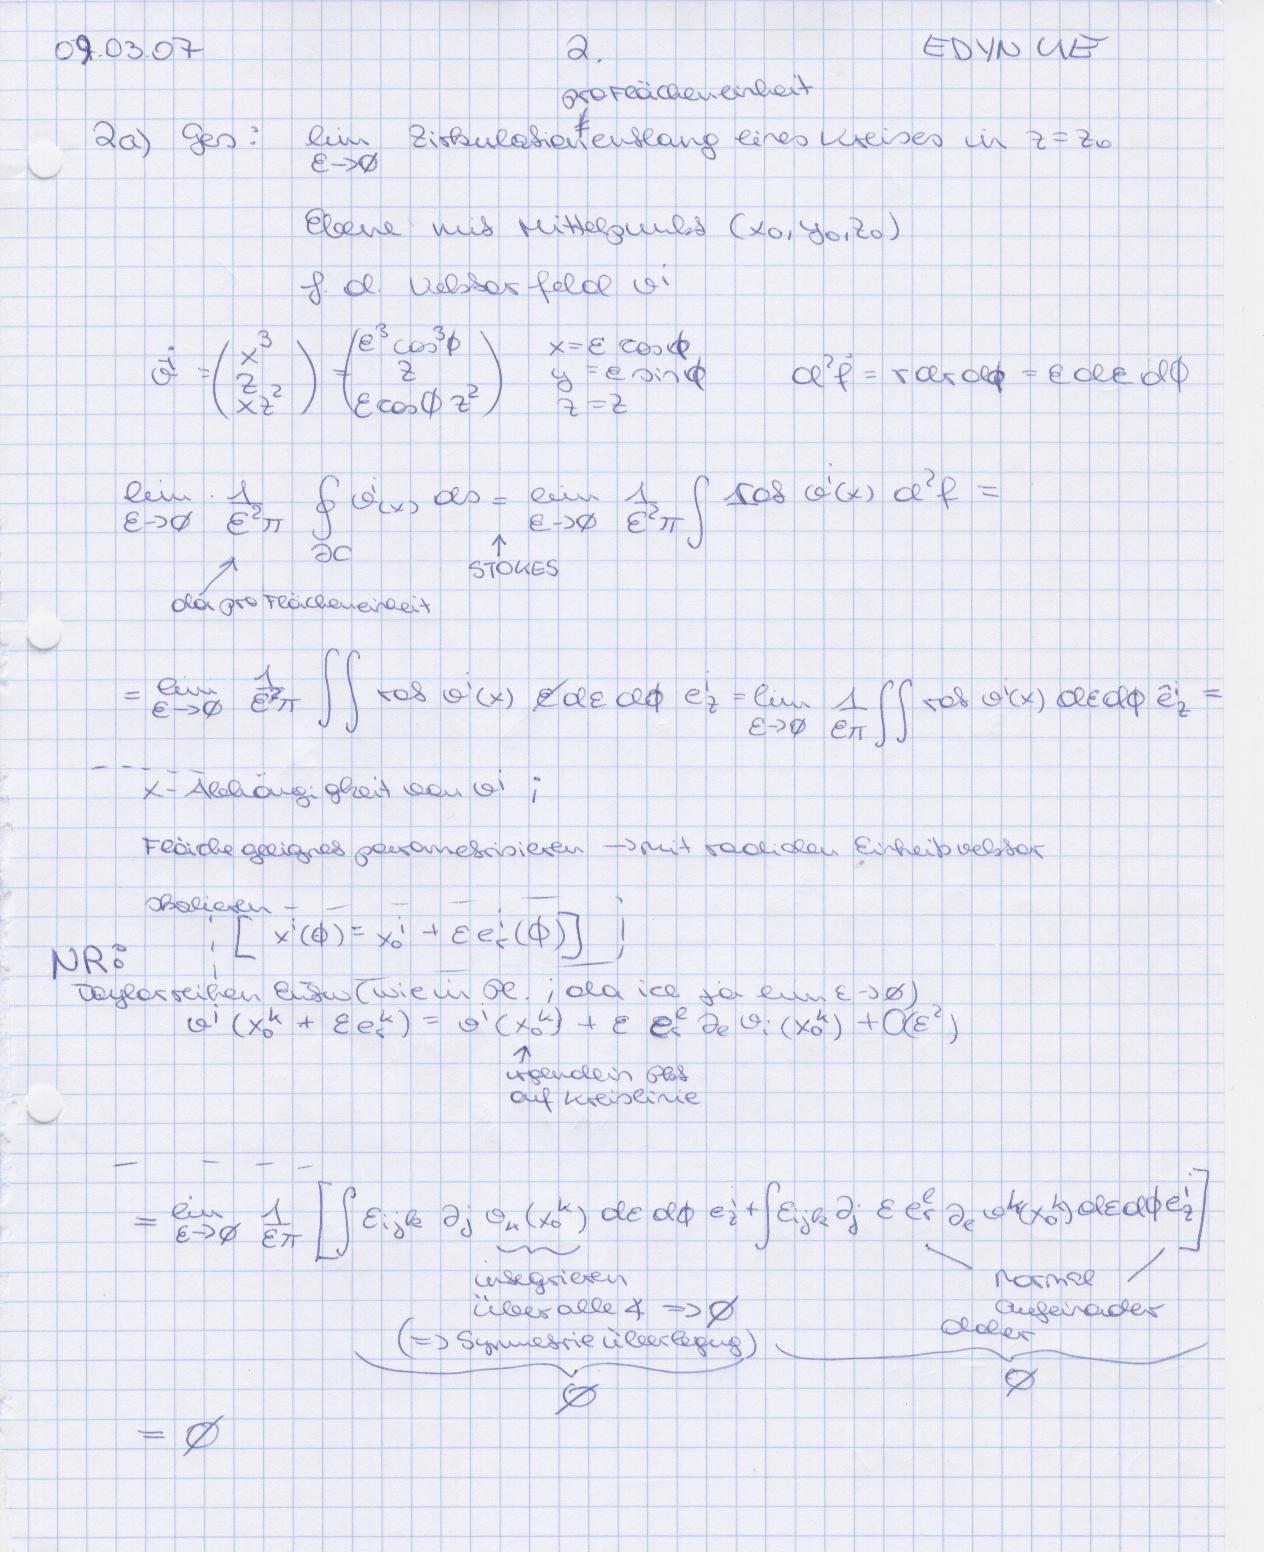 09.03.07 2. EDYN UE
pro Flächeneinheit
2a) Ges: lim Zirkulation entlang eines Kreises in z = z₀
ε→∅
Ebene mit Mittelpunkt (x₀, y₀, z₀)
f. d. Vektorfeld vⁱ
vⁱ = (x³, z, xz²) = (ε³cos³ϕ, z, εcosϕ z²) x = ε cosϕ y = ε sinϕ z = z d²f = r dr dϕ = ε dε dϕ
lim 1/ε²π ∮ vⁱ(x) ds = lim 1/ε²π ∫ rot vⁱ(x) d²f =
ε→∅ ∂C ε→∅
↑ STOKES
da pro Flächeneinheit
= lim 1/ε²π ∬ rot vⁱ(x) ε dε dϕ eⁱ_z = lim 1/επ ∬ rot vⁱ(x) dε dϕ eⁱ_z =
ε→∅ ε→∅
x-Abhängigkeit von vⁱ ;
Fläche geeignet parametrisieren → mit radialen Einheitsvektor
skalieren
[ xⁱ(ϕ) = x₀ⁱ + ε e_rⁱ(ϕ) ]
NR:
Taylorreihen Entw (wie in ; da ich ja lim ε→∅)
vⁱ(x₀ᵏ + ε e_rᵏ) = vⁱ(x₀ᵏ) + ε e_rˡ ∂ₗ vᵢ(x₀ᵏ) + O(ε²)
↑
irgendein Pkt
auf Kreislinie
= lim 1/επ [ ∫ ε_ijk ∂_j v_k(x₀ᵏ) dε dϕ e_zⁱ + ∫ ε_ijk ∂_j ε e_rˡ ∂ₗ vᵏ(x₀ᵏ) dε dϕ e_zⁱ ]
ε→∅
integrieren normal
über alle ∢ ⇒ ∅ aufeinander
(⇒ Symmetrieüberlegung)
∅ ∅
= ∅